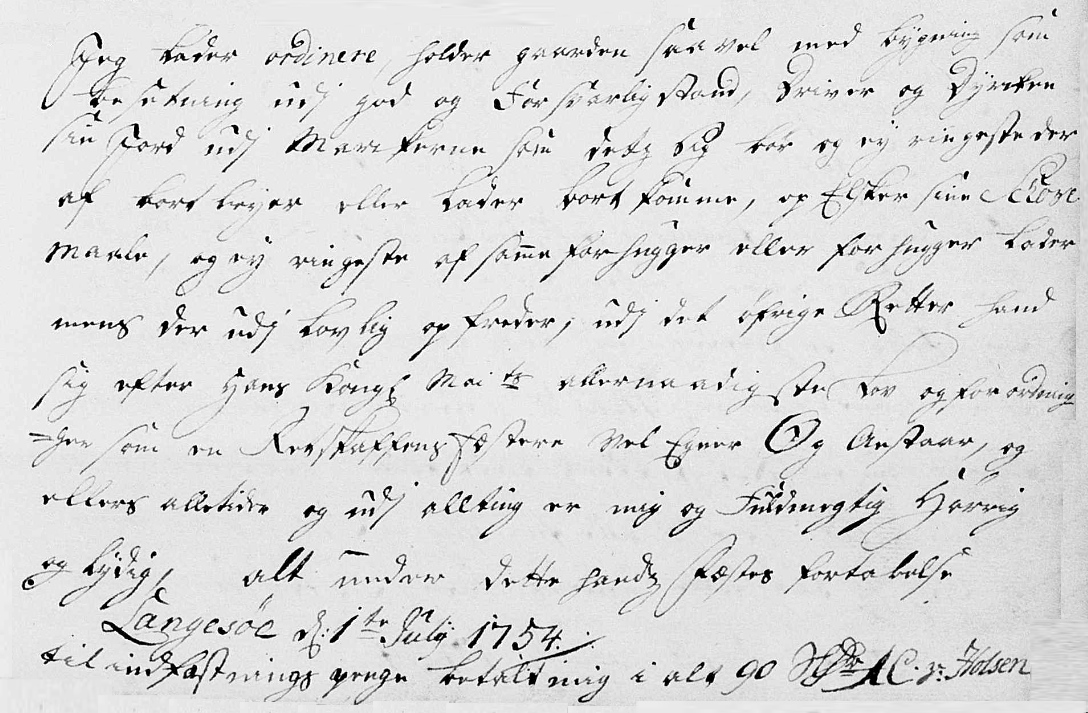 Jeg lader ordinere, holder gaarden saavel med bÿgning som
besetning udj god og Forsvarlig stand, Driver og Dÿrcker
sin Jord udj Markerne som det sig bör og eÿ ringeste der
af bort leÿer eller lader bort komme, op Elsker sine Skove
Maale, og eÿ ringeste af samme forhugger eller forhugger lader
mens der udj lovlig opfreder, udj det öfrige Retter hand
sig efter Hans Kongl Maits allernaadigste Lov og forordning
=ger som en Retskaffens Fæstere Vel Egner Og Anstaar, og
ellers alletider og udj allting er mig og Fuldmegtig Hörrig
og lÿdig, alt under dette hands Fæstes fortabelse
Langesöe d: 1te Julÿ 1754.
til indfæstnings penge betalt mig i alt 90 Rdr AC v: Holsen